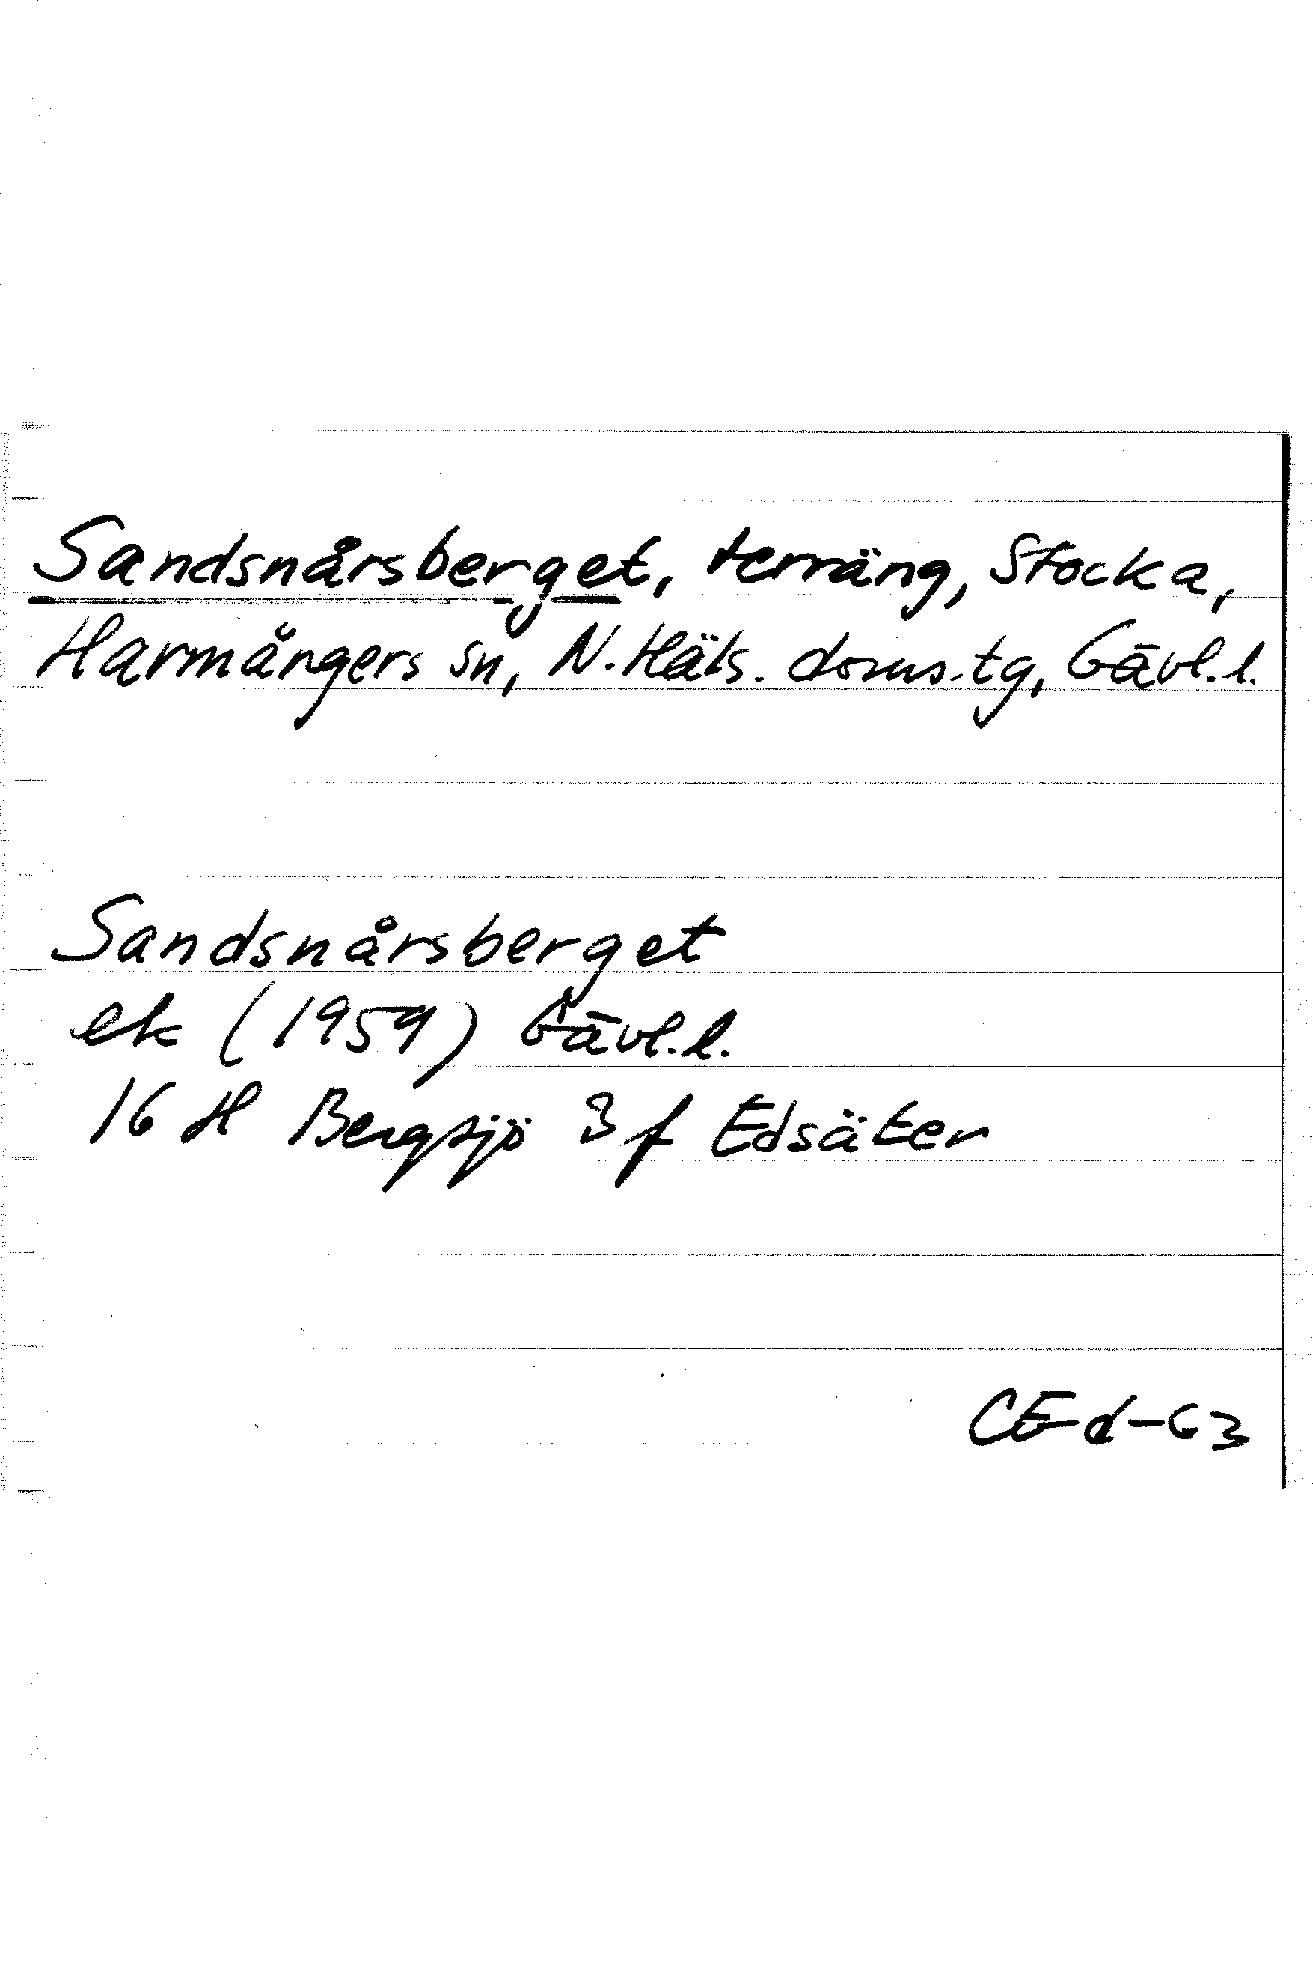 Sandsnårsberget, terräng, Stocka,
Harmångers sn, N. Häls. doms.tg, Gävl.l.
Sandsnårsberget
ek (1959) Gävl.l.
16 H Bergsjö 3 f Edsäter
CEd-63